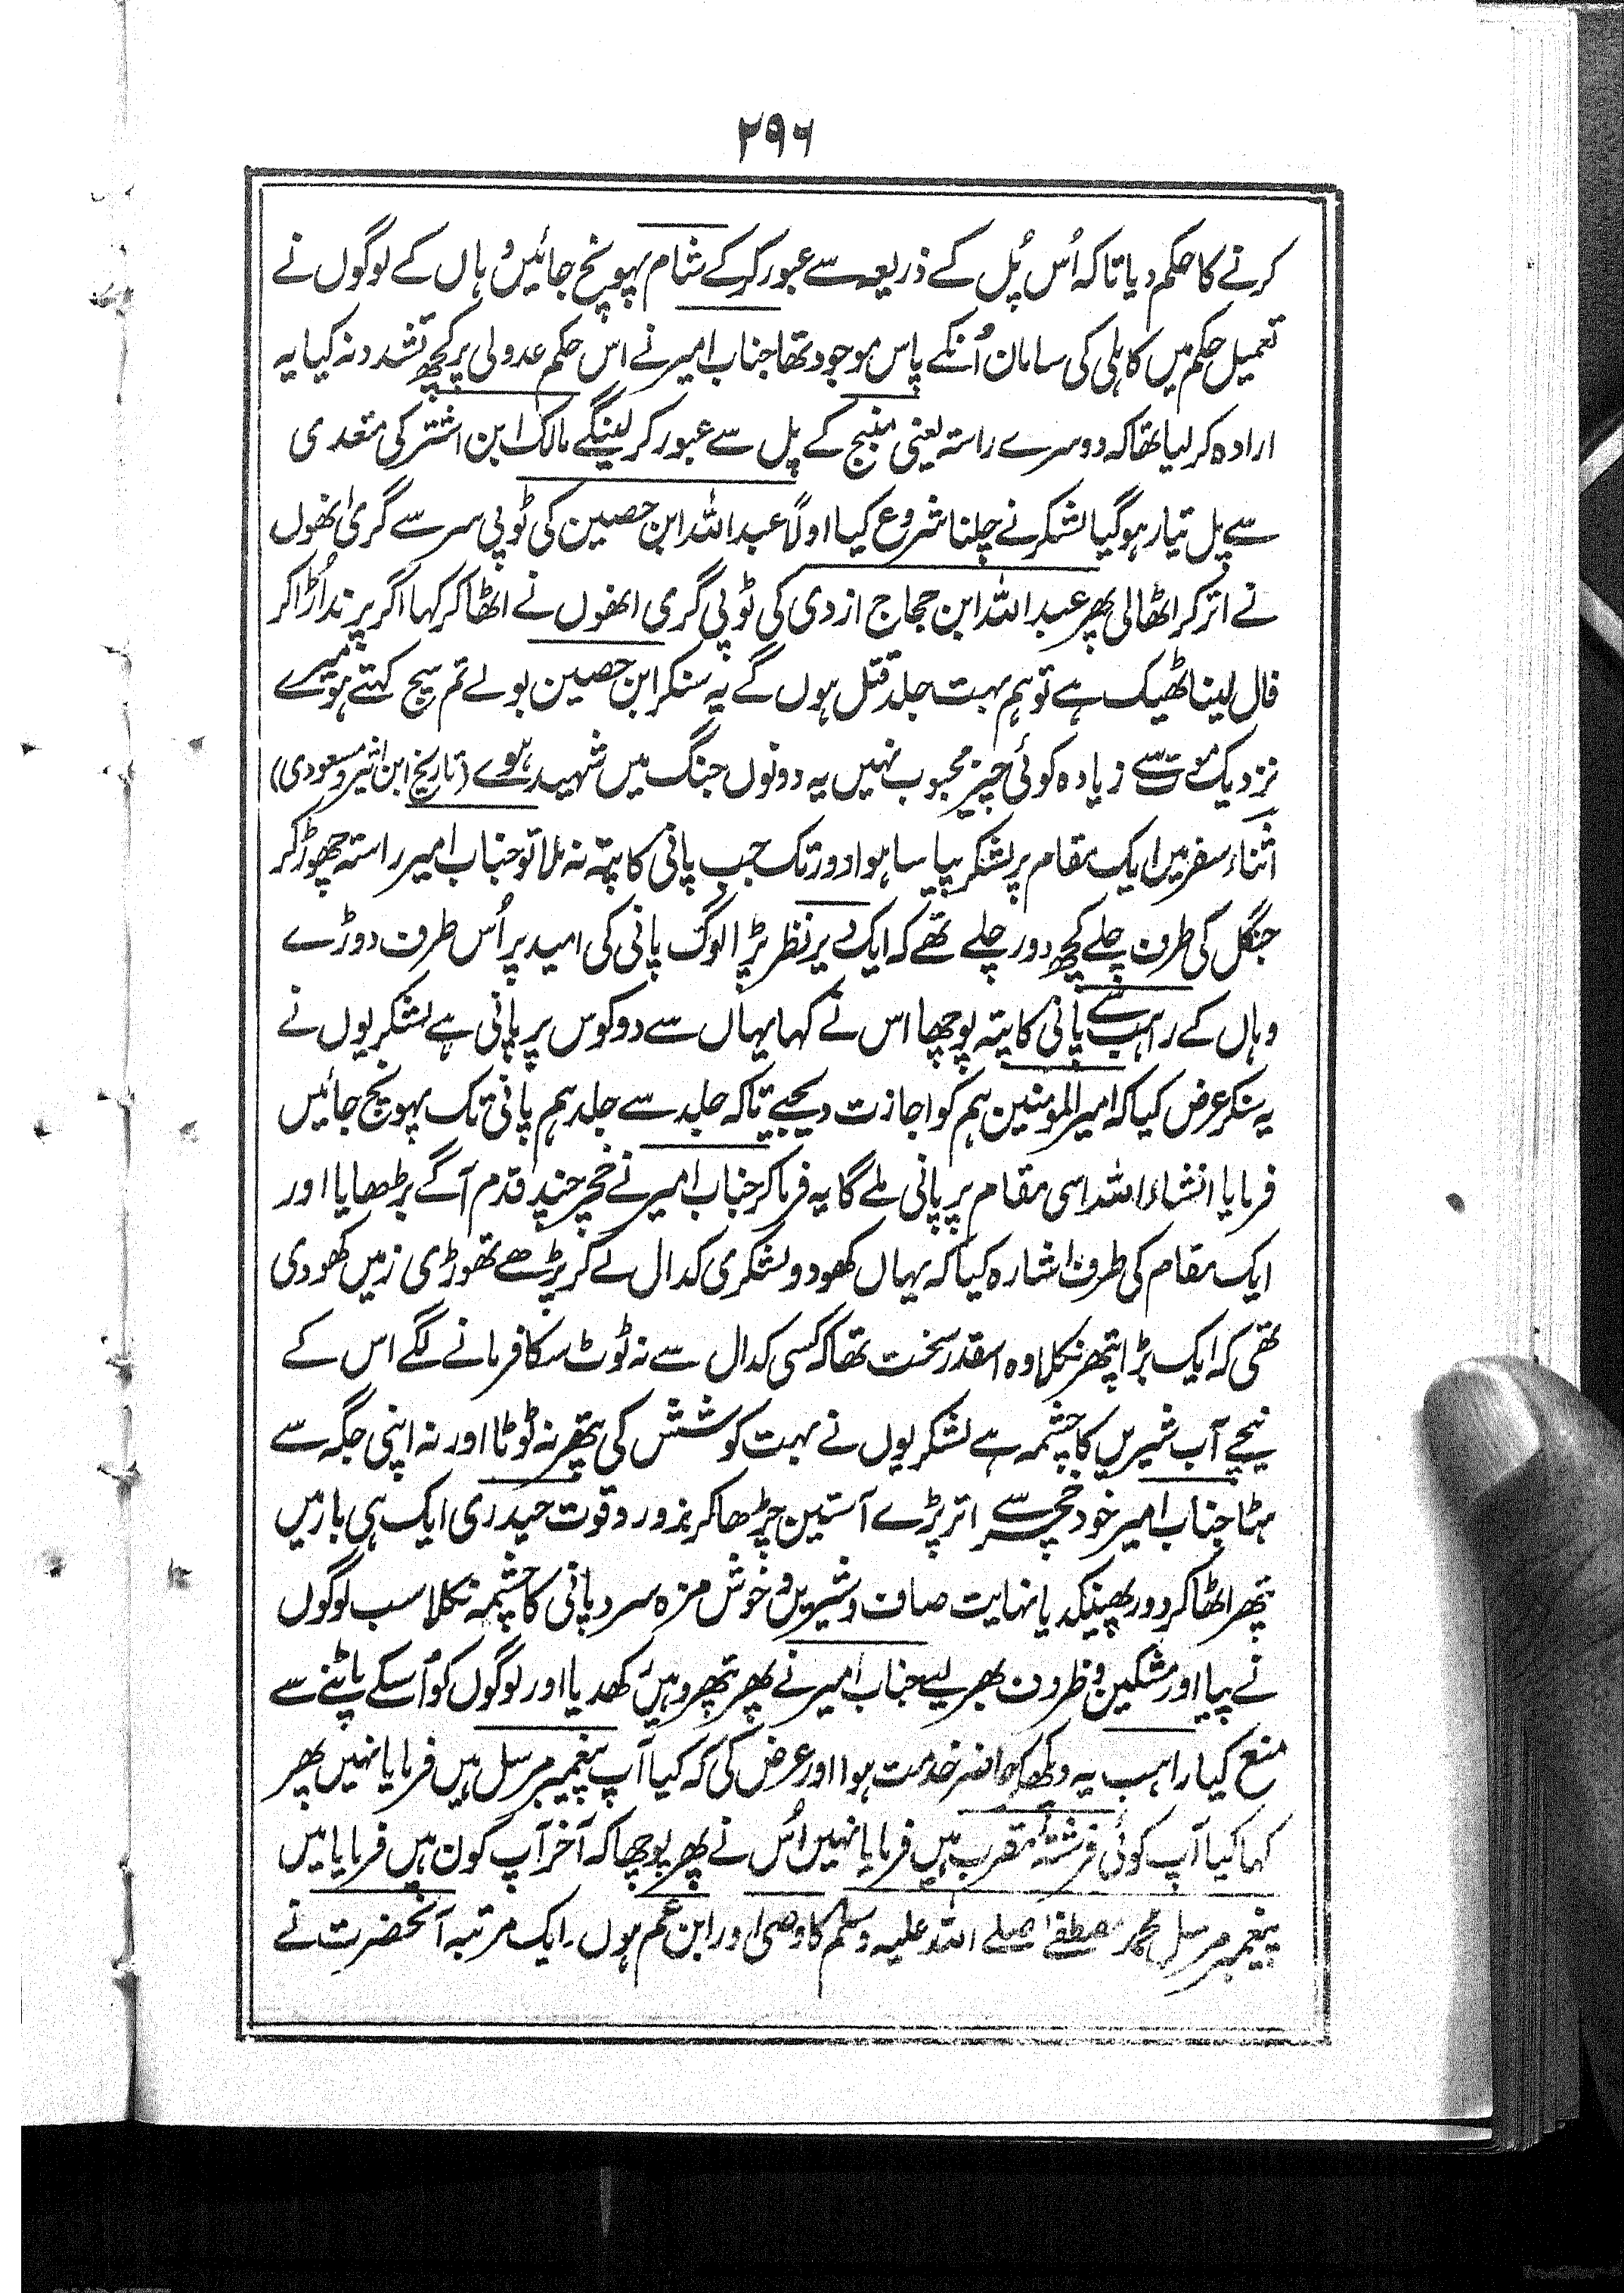 ۲۹۶
کرنے کا حکم دیا تاکہ اُس پُل کے ذریعہ سے عبور کرکے شام پہونچ جائیں وہاں کے لوگوں نے
تعمیل حکم میں کاہلی کی سامان اُنکے پاس موجود تھا جناب امیر نے اس حکم عدولی پر کچھ تشدد نہ کیا یہ
ارادہ کرلیا تھا کہ دوسرے راستہ یعنی منبج کے پل سے عبور کرلینگے مالک ابن اشتر کی متعدی
سے پل تیار ہوگیا لشکر نے چلنا شروع کیا اولاً عبداللہ ابن حصین کی ٹوپی سر سے گری انھوں
نے اتر کر اٹھالی پھر عبداللہ ابن حجاج ازدی کی ٹوپی گری انھوں نے اٹھا کر کہا اگر پرند اُڑا کر
فال لینا ٹھیک ہے تو ہم بہت جلد قتل ہوں گے یہ سنکر ابن حصین بولے تم سچ کہتے ہو میرے
نزدیک موت سے زیادہ کوئی چیز محبوب نہیں یہ دونوں جنگ میں شہید ہوے (تاریخ ابن اثیر و مسعودی)
اثناء سفر میں ایک مقام پر لشکر پیاسا ہوا دور تک جب پانی کا پتہ نہ ملا تو جناب امیر راستہ چھوڑ کر
جنگل کی طرف چلے کچھ دور چلے تھے کہ ایک دیر نظر پڑا لوگ پانی کی امید پر اُس طرف دوڑے
وہاں کے راہب سے پانی کا پتہ پوچھا اس نے کہا یہاں سے دو کوس پر پانی ہے لشکریوں نے
یہ سنکر عرض کیا کہ امیرالمومنین ہم کو اجازت دیجیے تاکہ جلد سے جلد ہم پانی تک پہونچ جائیں
فرمایا انشاءاللہ اسی مقام پر پانی ملے گا یہ فرما کر جناب امیر نے خچر چند قدم آگے بڑھایا اور
ایک مقام کی طرف اشارہ کیا کہ یہاں کھودو لشکری کدال لے کر بڑھے تھوڑی زمیں کھودی
تھی کہ ایک بڑا پتھر نکلا وہ اسقدر سخت تھا کہ کسی کدال سے نہ ٹوٹ سکا فرمانے لگے اس کے
نیچے آب شیریں کا چشمہ ہے لشکریوں نے بہت کوشش کی پتھر نہ ٹوٹا اور نہ اپنی جگہ سے
ہٹا جناب امیر خود خچر سے اتر پڑے آستین چڑھا کر بزور و قوت حیدری ایک ہی بار میں
پتھر اٹھا کر دور پھینکدیا نہایت صاف و شیریں و خوش مزہ سرد پانی کا چشمہ نکلا سب لوگوں
نے پیا اور مشکیں و ظروف بھر لیے جناب امیر نے پھر پتھر وہیں رکھدیا اور لوگوں کو اُسکے پاٹنے سے
منع کیا راہب یہ دیکھکر حاضر خدمت ہوا اور عرض کی کہ کیا آپ پیغمبر مرسل ہیں فرمایا نہیں پھر
کہا کیا آپ کوئی فرشتۂ مقرب ہیں فرمایا نہیں اُس نے پھر پوچھا کہ آخر آپ کون ہیں فرمایا میں
پیغمبر مرسل محمد مصطفےٰ صلے اللہ علیہ وسلم کا وصی اور ابن عم ہوں۔ ایک مرتبہ آنحضرت نے